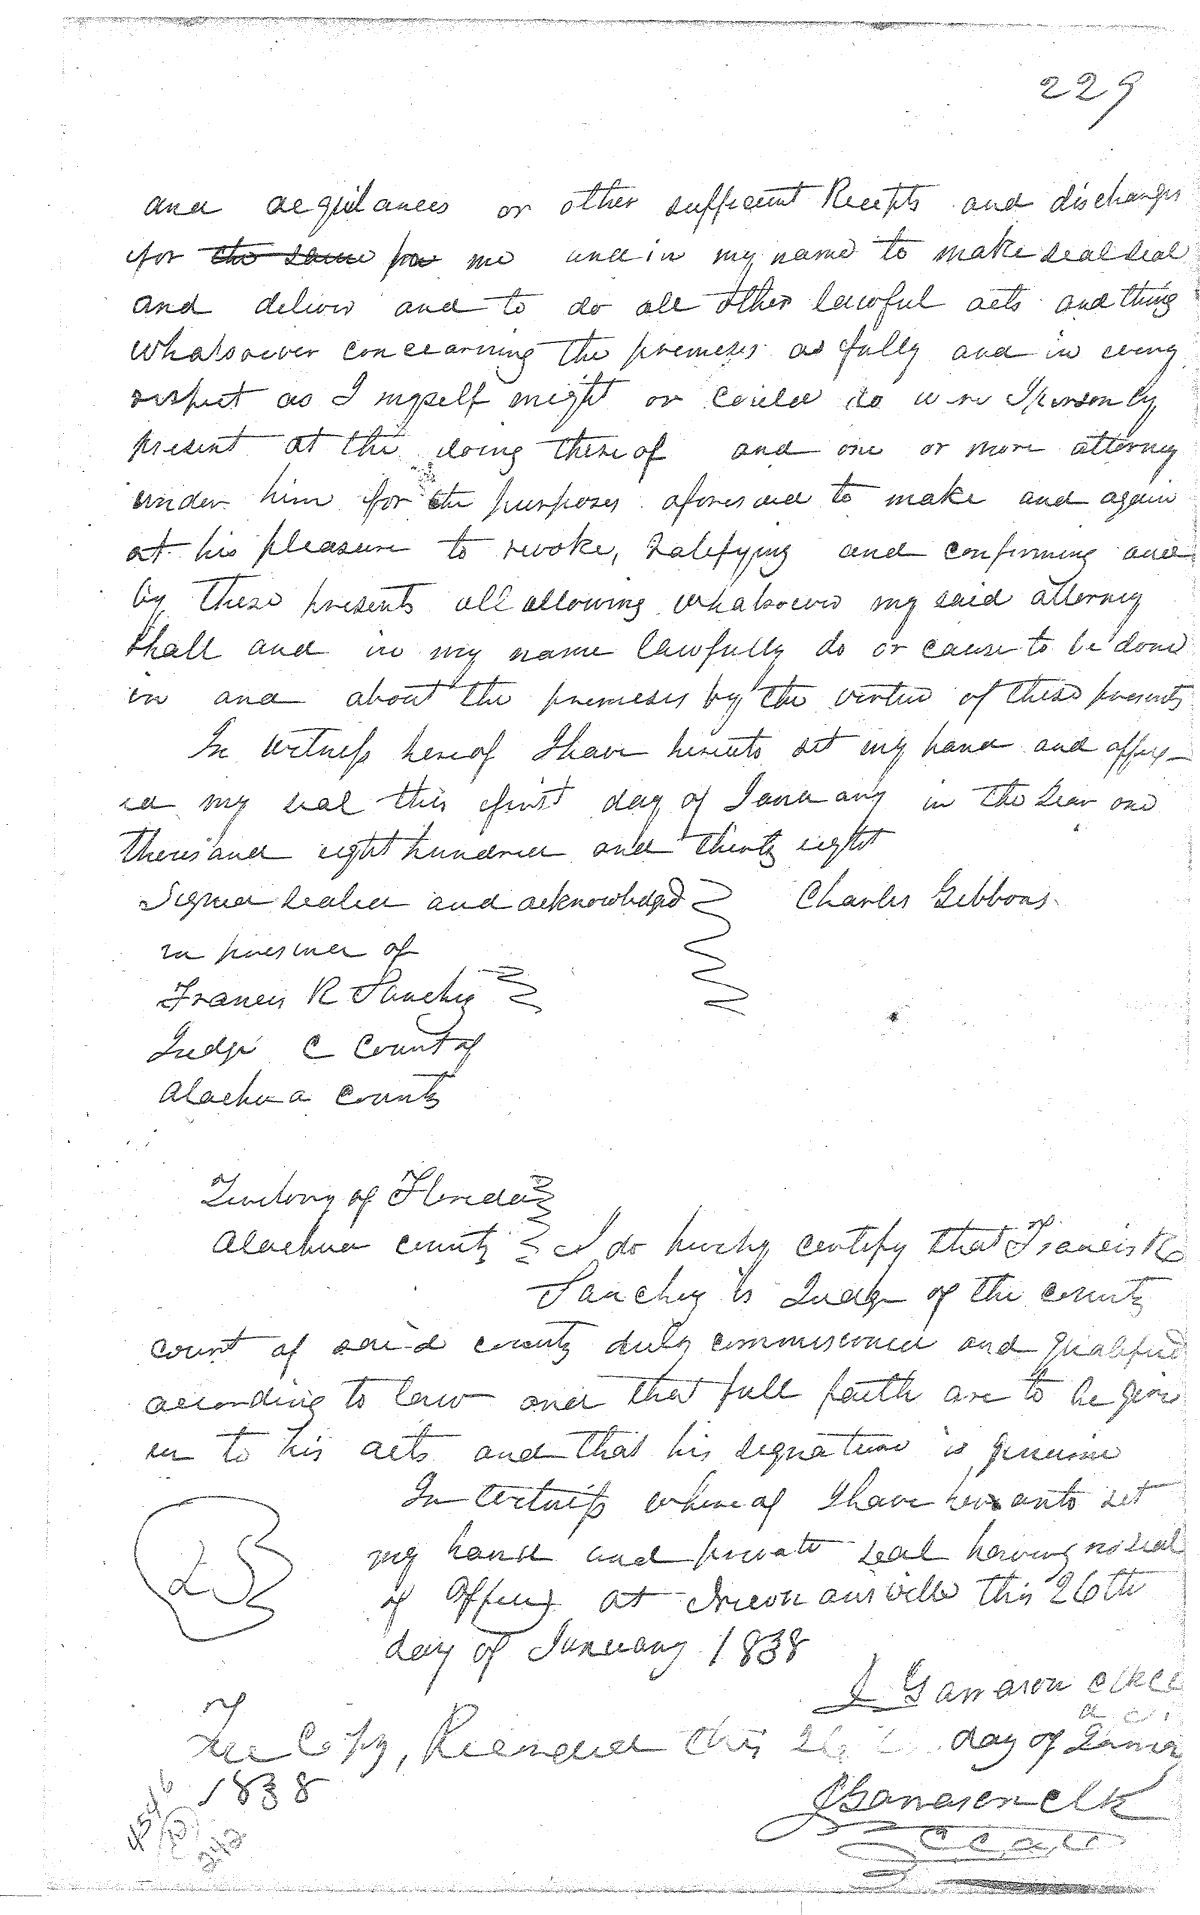 229
and acquitances or other sufficient Receipts and discharges
for the same for me and in my name to make seal seal
and deliver and to do all other lawful acts and thing
whatsoever concearning the premeses as fully and in every
respect as I myself might or could do were I personly
present at the doing there of and one or more attorney
under him for the purposes aforesaid to make and again
at his pleasure to revoke, Ratifying and confirming and
by these presents all allowing whatsoever my said attorney
shall and in my name lawfully do or cause to be done
in and about the premeses by the virtue of these presents
In witness hereof I have hereunto set my hand and affix-
ed my seal this first day of January in the year one
thousand eight hundred and thirty eight
Signed sealed and acknowledged Charles Gibbons.
in presence of
Francis R Sanchez
Judge C Court of
Alachua County
Territory of Florida
Alachua county I do hereby certify that Francis R
Sanchez is Judge of the county
court of said county duly commissioned and qualified
according to law and that full faith are to be give
en to his acts and that his signature is genuine
In Witness where of I have hereunto set
my hand and private seal having no seal
of office at Newnansville this 26th
day of January 1838
LS
J Garrason clk CC
A C.
True Copy, Recorded this 26 day of January
1838
J Garrason clk
C C A C